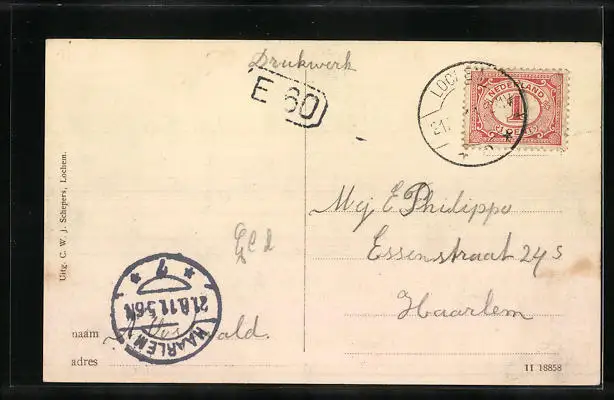 Drukwerk
E 60
LOCHEM
NEDERLAND
1
Mej E Philippo
Essenstraat 24s
Haarlem
Uitg. C. W. J. Schepers, Lochem.
HAARLEM
21.8.11.5-6N
7
naam
adres
II 18858